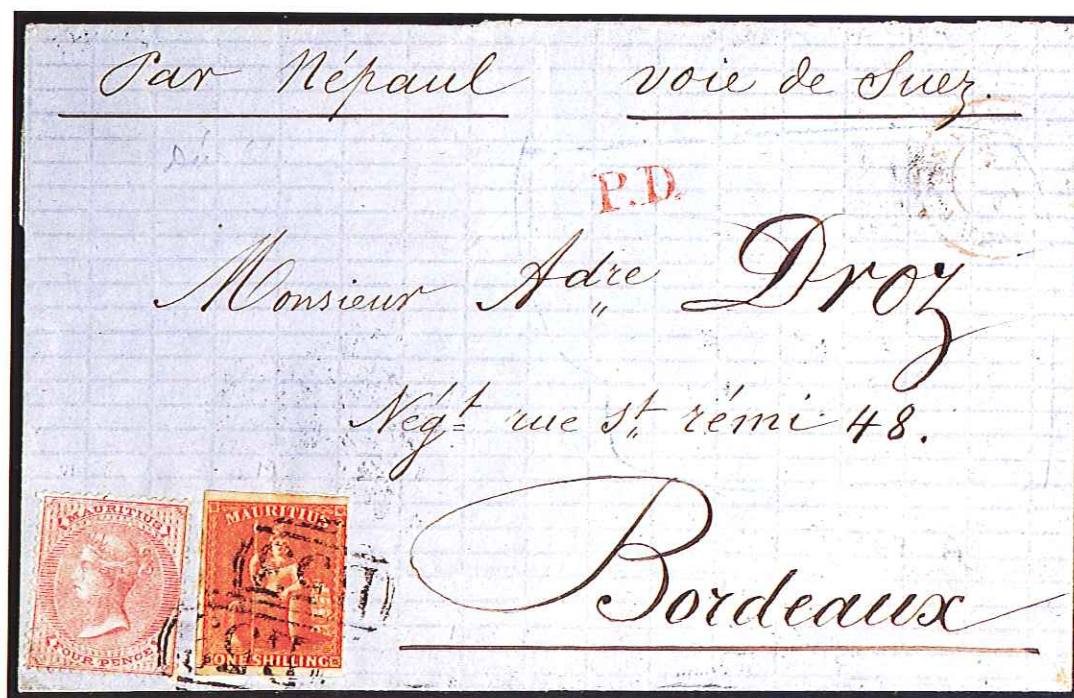 Par Népaul voie de Suez.
P.D.
Monsieur Adre Droz
Négt rue St. rémi 48.
Bordeaux
MAURITIUS
FOUR PENCE
MAURITIUS
ONE SHILLING